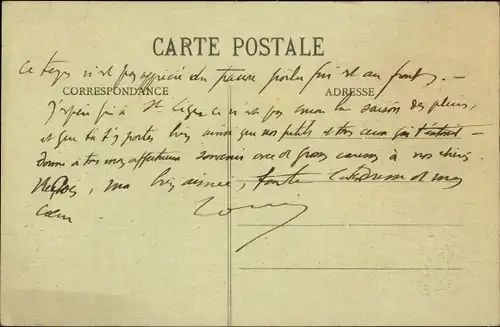 Ce temps n'est pas apprécié du pauvre poilu qui est au front. —
CARTE POSTALE
CORRESPONDANCE ADRESSE
J'espère qu'à St Léger ce n'est pas encore la saison des pluies,
et que tu t'y portes bien ainsi que nos petits et tous ceux qui t'entourent —
donne à tous mes affectueux souvenirs avec de grosses caresses à nos chéris
, ma bien aimée, toute la tendresse de mon
cœur
Louis